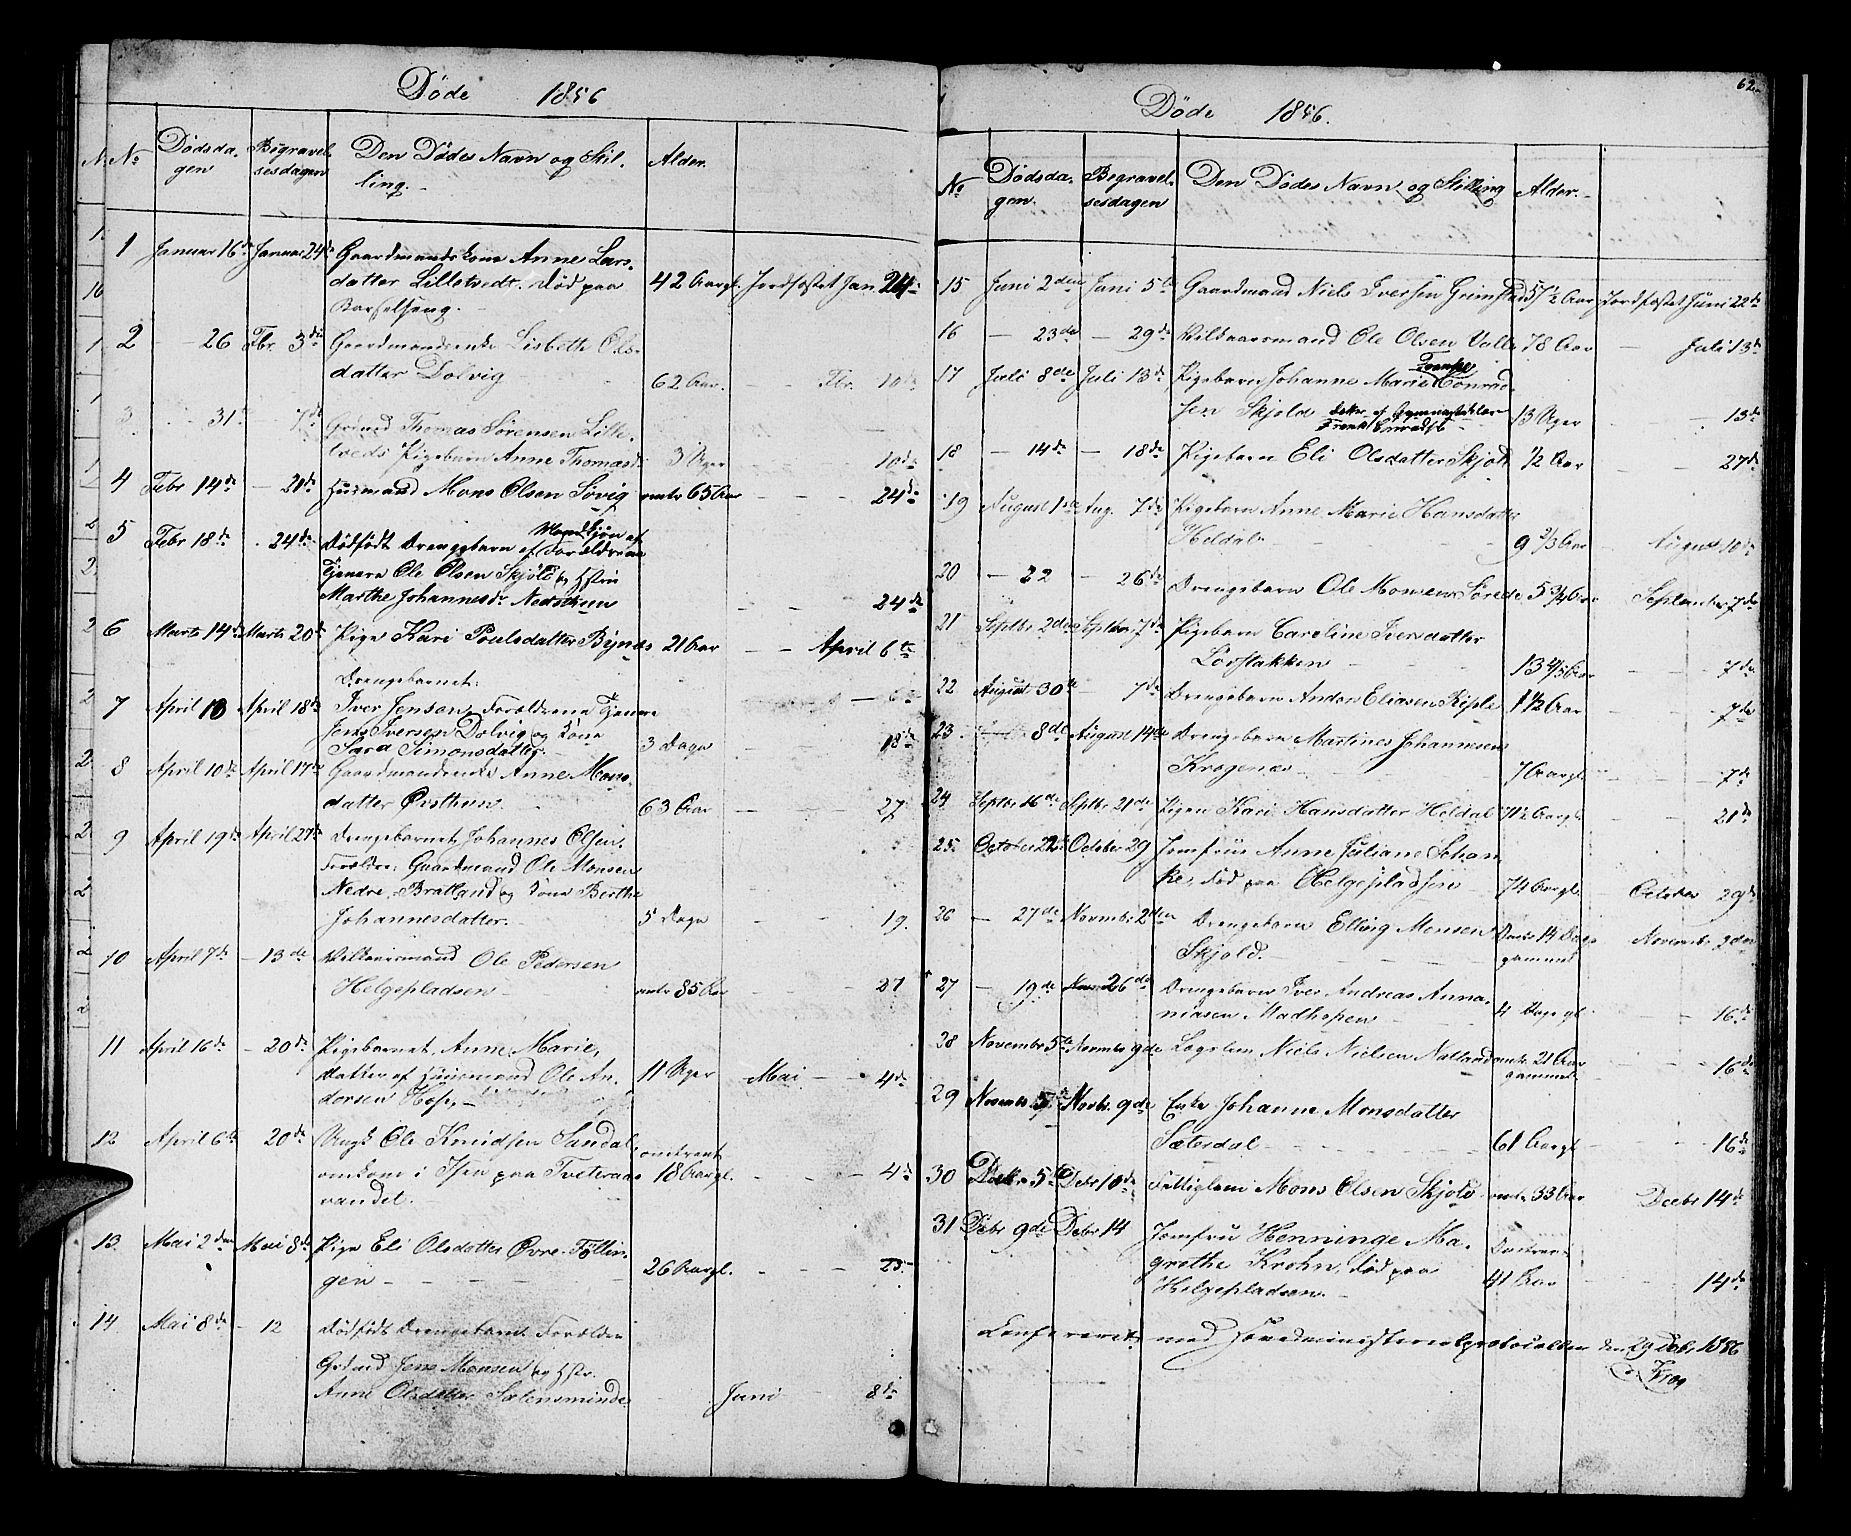 Døde 1856
No Dødsdagen Begravelsesdagen Den Dødes Navn og Stilling. Alder.
1 Januar 16de Januar 24de Gaardmandskone Anne Lars-
datter Lilletvedt. død paa 42 Aargl. Jordfæstet Jan 24de
Barselseng.
2 - 26 Fbr. 3de Gaardmandsenke Lisbette Ols-
datter Dolvig 62 Aar. - Fbr. 10de
3. - 31te 7de Grdmd Thomas Sørensen Lille-
tveds Pigebarn Anne Thomasdr 3 Uger 10de
4 Febr 14de - 20de Huusmand Mons Olsen Søvig omtr 65 Aar - - 24de
5 Febr 18de . 24de Dødfødt Drengebarn af Forældrene
Mandkjøn af
Tjenere Ole Olsen Skjold og Hstru
Marthe Johannesdr Nedstthun - - 24de
6 Marts 14de Marts 20de Pige Kari Poulsdatter Bynds 21 Aar - - April 6te
Drengebarnet:
7 April 13 April 18de Iver Jenson, Forældrene Tjenere - 6te
Jens Iversen Dolvig og Kone
Sara Simonsdatter. 3 Dage 18de
8 April 10de April 17de Gaardmandsenke Anne Mons-
datter Øvsthun 63 Aar - 27
9 April 19de April 27de Drengebarnet Johannes Olsen.
Forældre: Gaardmand Ole Monsen
Nedre-Bratland og Kone Berthe
Johannesdatter. 5 Dage - - 19.
10 April 7de - 13de Vilkaarsmand Ole Pedersen
Helgepladsen omtr 85 Aar - - 27
11 April 16de - 20de Pigebarnet, Anne Marie,
Datter af Huusmand Ole An- 11 Uger Mai - - 4de
dersen Hop,
12 April 6te 20de Ungk Ole Knudsen Sandal, omtrent
omkom i Isen paa Tveteraas 18 Aargl. - - 4de
vandet.
13. Mai 2den Mai 8de Pige Eli Olsdatter Øvre-Tøllin-
gen - - - - 26 Aargl. - -
14. Mai 8de - 12 Dødfødt Drengebarn Forældre
Grdmd Jens Monsen og Hstr.
Anne Olsdatter Sælensminde - Juni - 8de
62.
Døde 1856.
No Dødsdagen. Begravelsesdagen Den Dødes Navn og Stilling Alder.
15 Juni 2den Juni 5te Gaardmand Niels Iversen Grimstad 57½ Aar Jordfæstet Juni 22de
16 - 23de - 29de Vilkaarsmand Ole Olsen Valle 78 Aar - Juli 13de
Franke
17 Juli 8de Juli 13de Pigebarn Johanne Marie Conrad-
sen Skjold datter af Gymnastiklærer 13 Uger - - 13de
Frank Conradsen
18 - 14de - 18de Pigebarn Eli Olsdatter Skjold ½ Aar - - 27de
19 August 1ste Aug. 7de Pigebarn Anne Marie Hansdatter
Heldal 9 2/3 Aar - August 10de
20 - 22 - 26de Drengebarn Ole Monsen Sørede 5 3/4 Aar September 7de
21 Septbr 2den Septbr 7de Pigebarn Caroline Iversdatter
Løvstakken 13 4/5 Aar - - 7de
22 August 30te - 7de Drengebarn Anders Eliasen Kiple 1½ Aar - 7de
23. 8de August 14de Drengebarn Martines Johannesen
Kragenæs 7 Aargl. - - 7de
24 Septbr 16de Septbr 21de Pigen Kari Hansdatter Heldal 71½ Aargl. - - 21de
25. October 22de October 29 Jomfru Anne Juliane Schan-
ke, død paa Helgepladsen 74 Aargl. October 29de
26 - 27de Novembr 2den Drengebarn Elling Monsen Omtr 14 Dage Novembr 2den
Skjold. gammel
27 - 19de 26de Drengebarn Iver Andreas Anna-
niasen Madhopen 4 Dage gl. - 16de
28 Novembr 5te Novmbr 9de Logslem Niels Nielsen Natland omtr. 21 Aar
gammel. - 16de
29 5te Novbr. 9de Enke Johanne Monsdatter
Sæterdal 61 Aargl. - 16de
30 Decbr. 5te Debr 10de Fattiglem Mons Olsen Skjold omtr 33 Aar Decbr 14de
31 Debr 9de Debr 14 Jomfru Henninge Ma- Omtrent
grethe Krohn, død paa 41 Aar - - 14de
Helgepladsen.
Confereret med Hovedministerialprotocollen den 29 Debr 1856
Krog